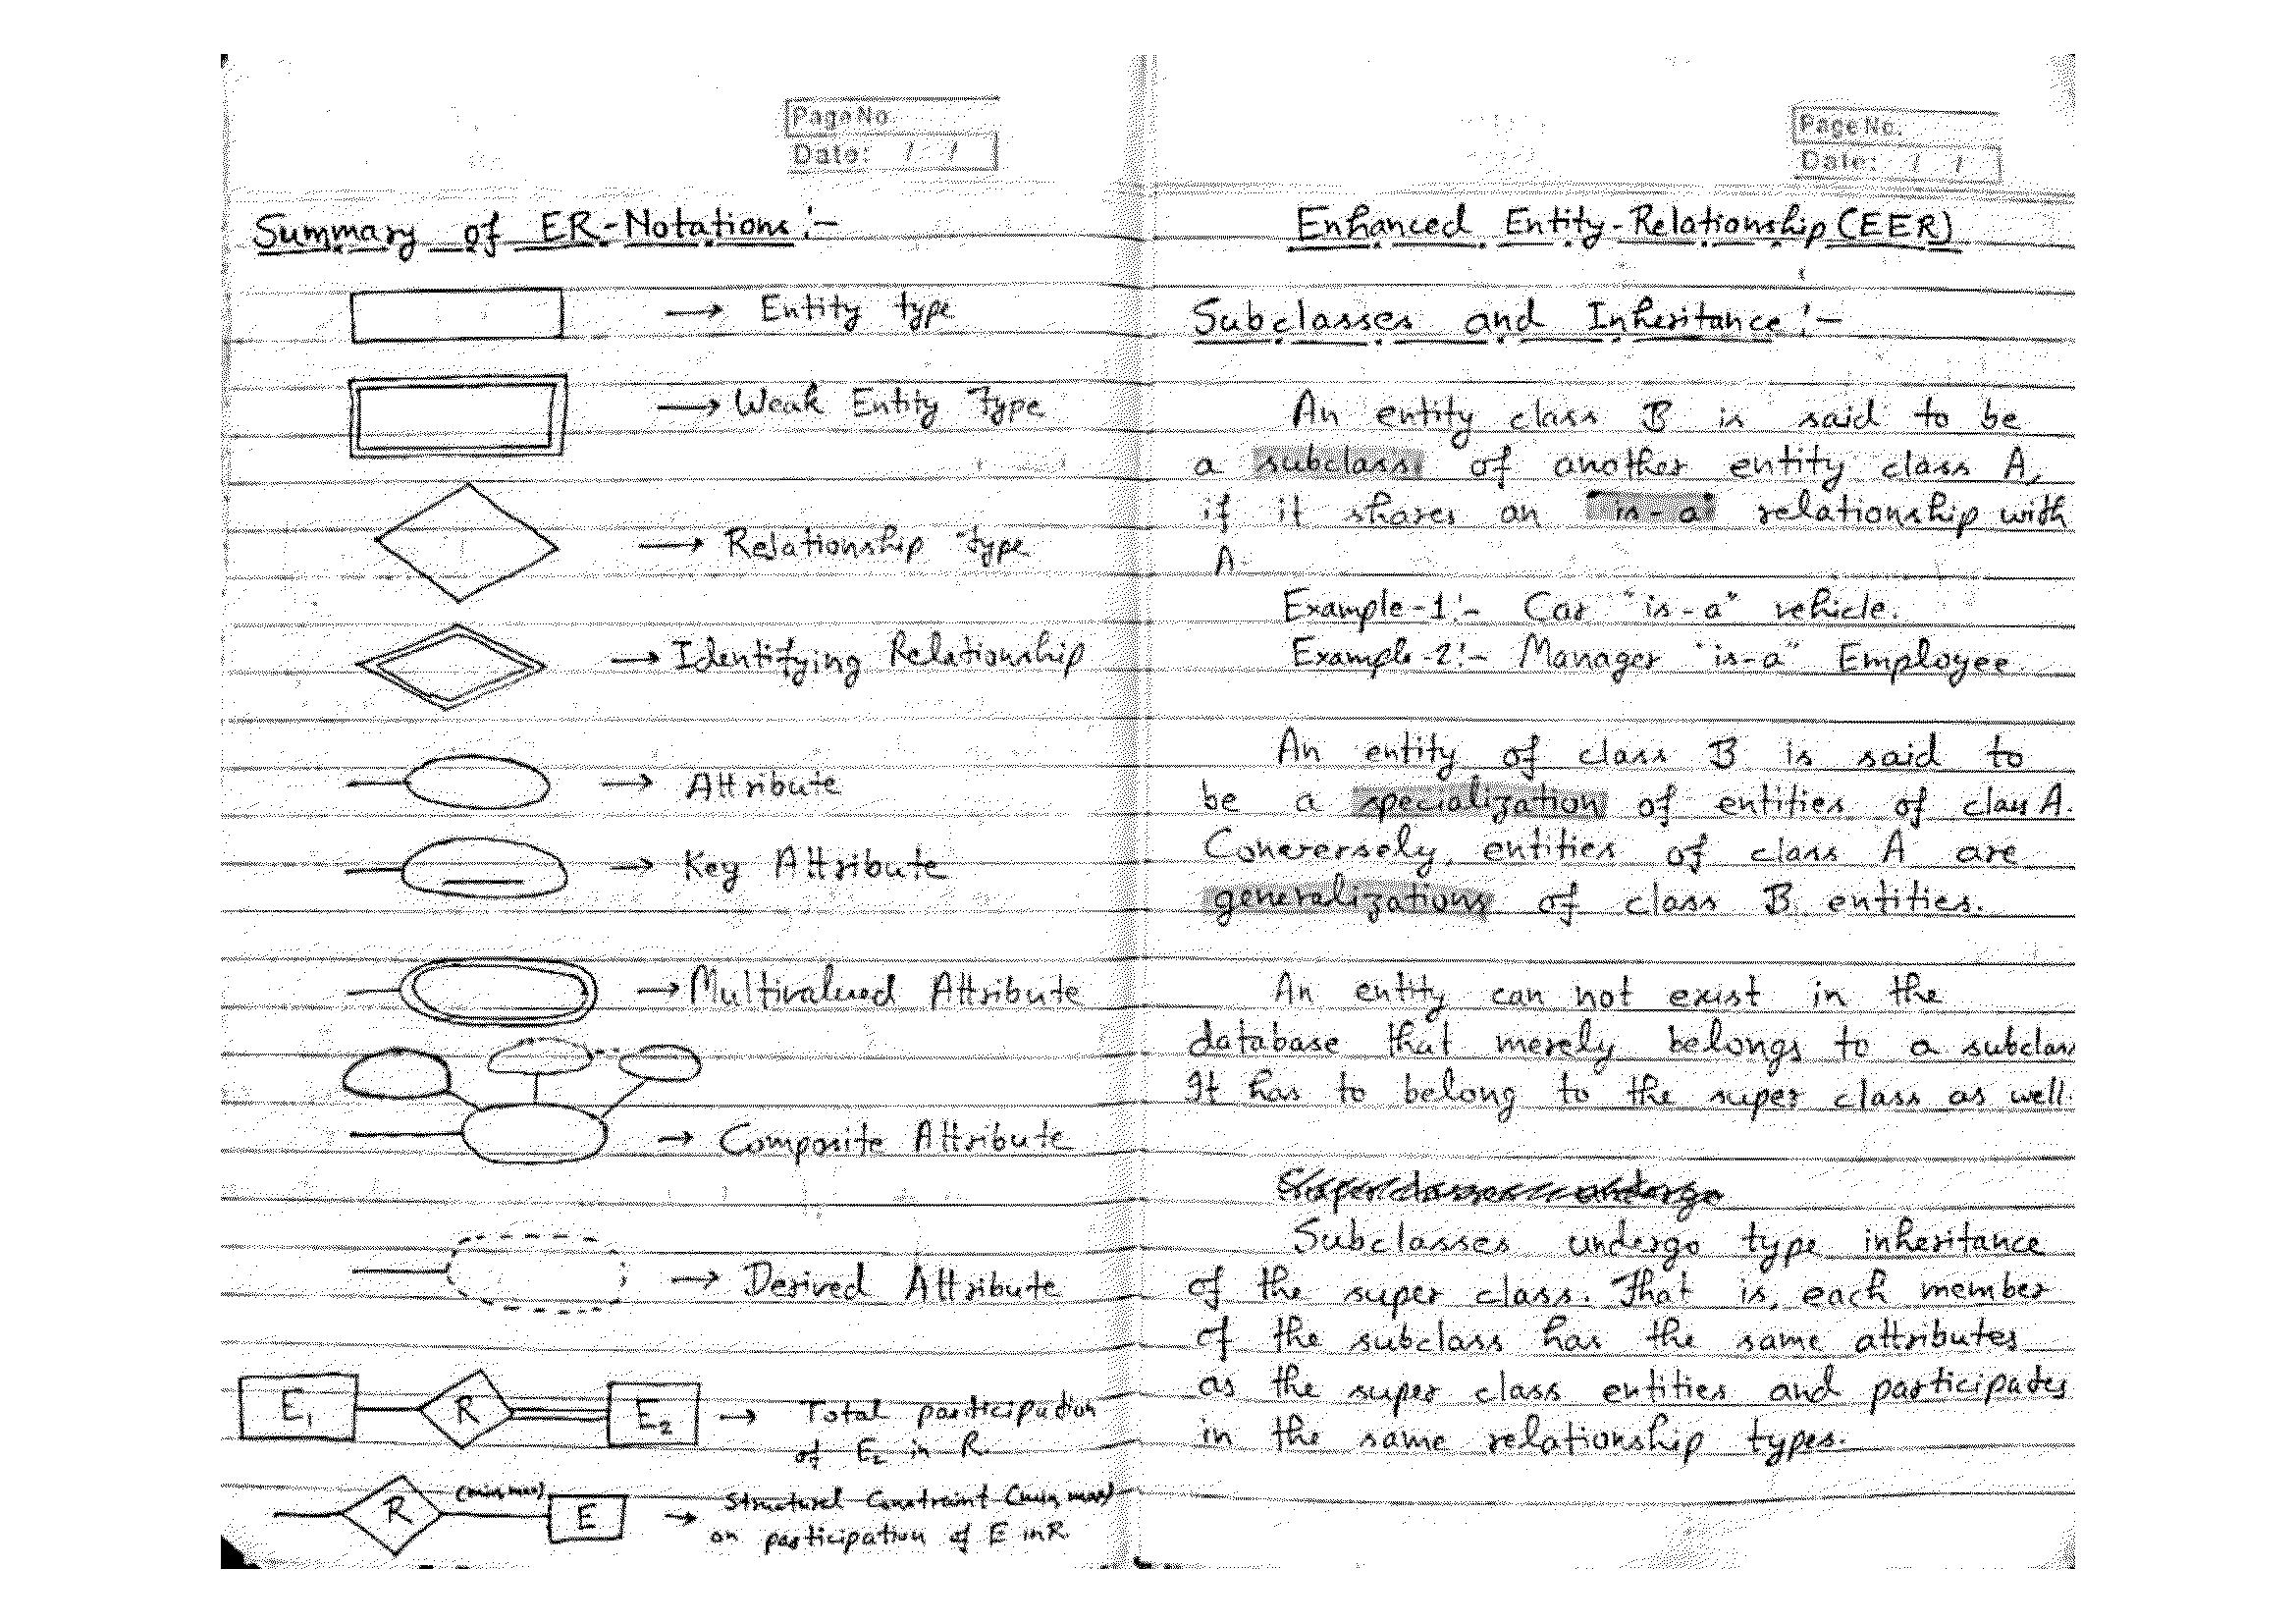 Page No.
Date: / /
Summary of ER-Notations:-
→ Entity type
→ Weak Entity Type
→ Relationship type
→ Identifying Relationship
→ Attribute
→ Key Attribute
→ Multivalued Attribute
→ Composite Attribute
→ Derived Attribute
E1 R E2 → Total participation
of E2 in R
R (min, max) E → Structural Constraint (min, max)
on participation of E in R
Page No.
Date: / /
Enhanced Entity-Relationship (EER)
Subclasses and Inheritance:-
An entity class B is said to be
a subclass of another entity class A,
if it shares an "is-a" relationship with
A.
Example-1:- Car "is-a" vehicle.
Example-2:- Manager "is-a" Employee.
An entity of class B is said to
be a specialization of entities of class A.
Conversely, entities of class A are
generalizations of class B entities.
An entity can not exist in the
database that merely belongs to a subclass
It has to belong to the super class as well.
Subclasses undergo type inheritance
of the super class. That is, each member
of the subclass has the same attributes
as the super class entities and participates
in the same relationship types.